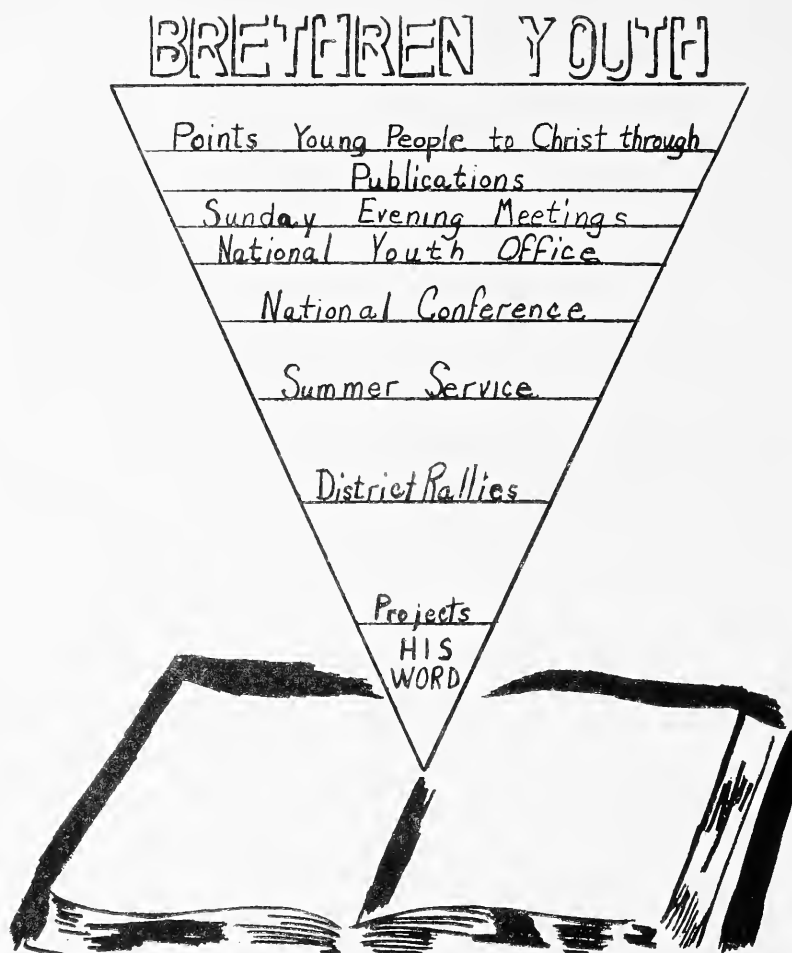 BRETHREN YOUTH
Points Young People to Christ through
Publications
Sunday Evening Meetings
National Youth Office
National Conference
Summer Service
District Rallies
Projects
HIS
WORD